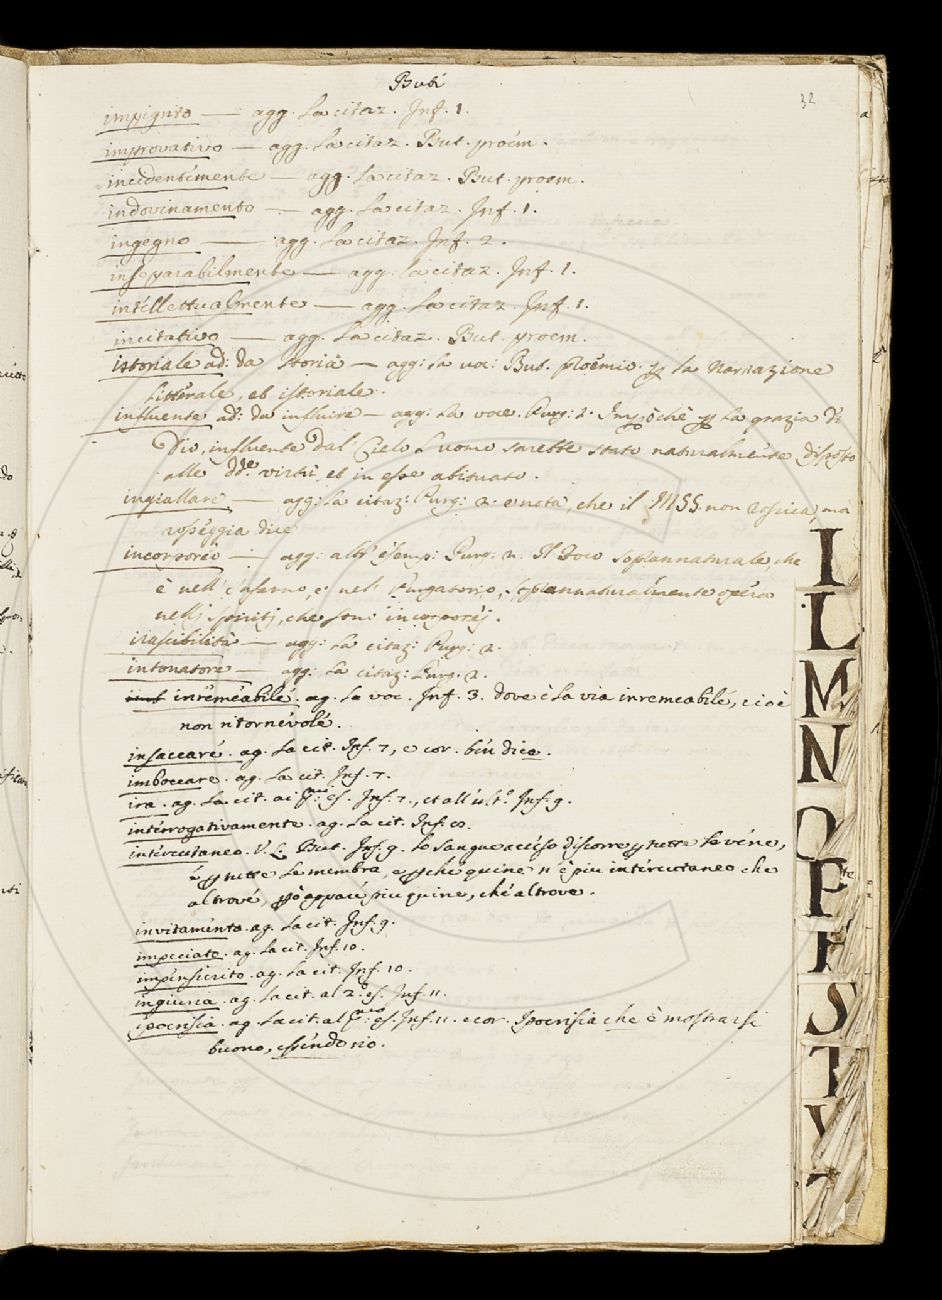 Buti
32
impigrito — agg. la citaz. Inf. 1.
improvativo — agg. la citaz. But. proem.
incidentemente — agg. la citaz. But. proem.
indovinamento — agg. la citaz. Inf. 1.
ingegno — agg. la citaz. Inf. 2.
inseparabilmente — agg. la citaz. Inf. 1.
intellettualmente — agg. la citaz. Inf. 1.
incitativo — agg. la citaz. But. proem.
istoriale ad: da storia — agg: la voc: But. proemio. la Narrazione
litterale, et istoriale.
influente ad: da influire — agg: la voce. Purg: 2. la grazia di
Dio, influente dal Cielo l'uomo sarebbe stato naturalmente disposto
alle dde. virtù, et in esse abituato.
ingiallare — agg: la citaz: Purg: 2. e nota, che il MSS. non rosica, ma
rosseggia dice
incorporeo — agg: altr' esemp: Purg: 2. Il Foco soprannaturale, che
è nell' Inferno, e nel Purgatorio, soprannaturalmente opera
nelli spiriti, che sono incorporej.
irascibilità — agg: la citaz: Purg: 2.
intonatore — agg: la citaz: Purg: 2.
inremeabile. ag. la voc. Inf. 3. dove è la via inremeabile, cioè
non ritornevole.
insaccare. ag. la cit. Inf. 7, e cor.
imboccare. ag. la cit. Inf. 7.
ira. ag. la cit. al es. Inf. 7., et all' ulto. Inf. 9.
interrogativamente. ag. la cit. Inf.
intercutaneo. V. L. But. Inf. 9. lo sangue acceso discorre p tutte le vene,
e p tutte le membra, e pchè quine n' è piu intercutaneo che
altrove, pò appare piu quine, che altrove.
invitamento. ag. la cit. Inf. 9.
impeciato. ag. la cit. Inf. 10.
impensierito. ag. la cit. Inf. 10.
ingiuria. ag. la cit. al 2o. es. Inf. 11.
ipocrisia. ag. la cit. al pmo. es. Inf. 11. e cor. Ipocrisia che è mostrarsi
buono, essendo rio.
I
L
M
N
O
P
R
S
T
V
Z